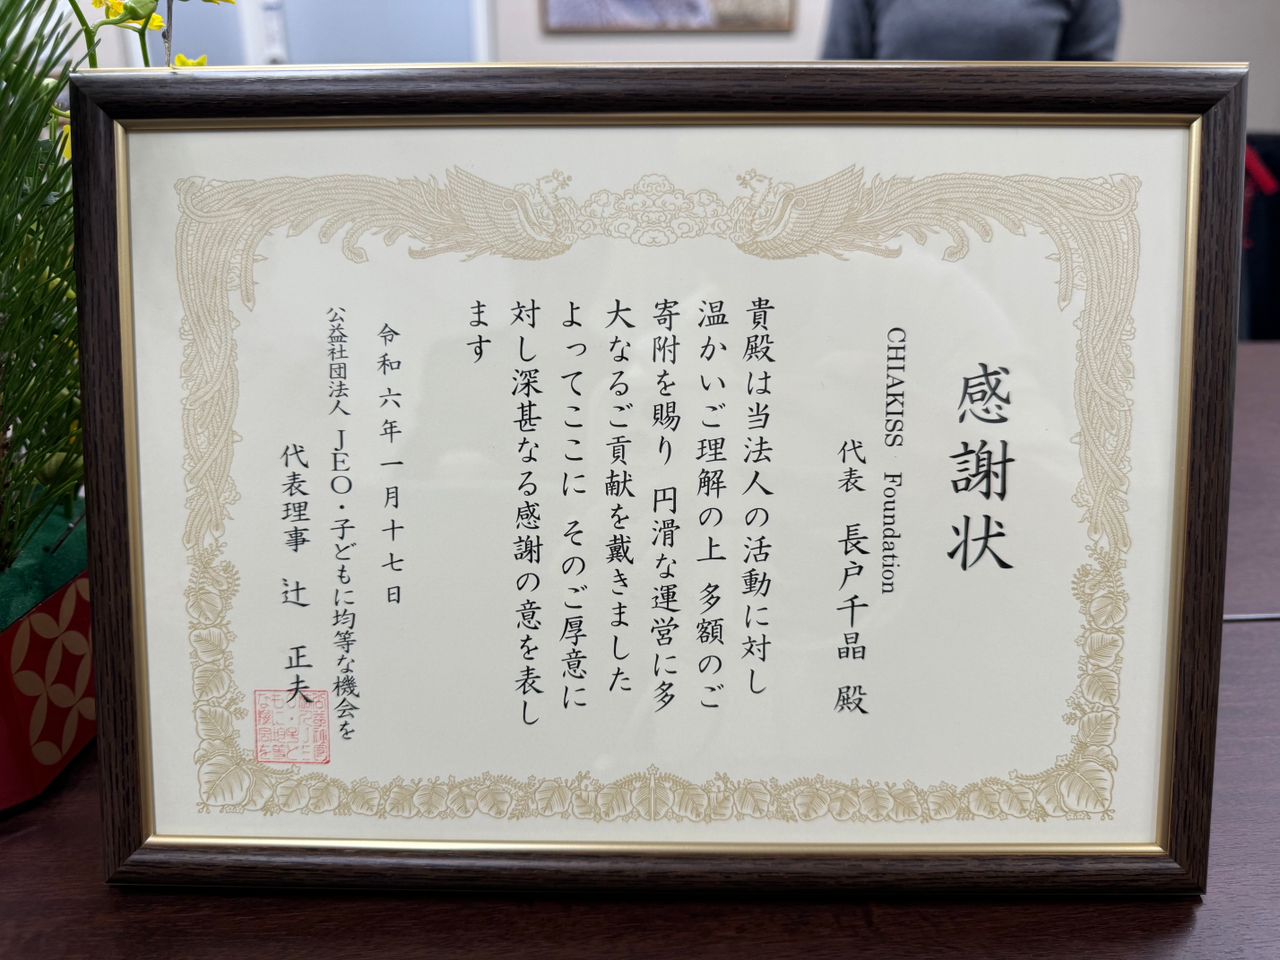 感謝状
CHIAKISS Foundation
代表 長戸千晶 殿
貴殿は当法人の活動に対し
温かいご理解の上 多額のご
寄附を賜り 円滑な運営に多
大なるご貢献を戴きました
よってここに そのご厚意に
対し深甚なる感謝の意を表し
ます
令和六年一月十七日
公益社団法人 JEO・子どもに均等な機会を
代表理事 辻 正夫